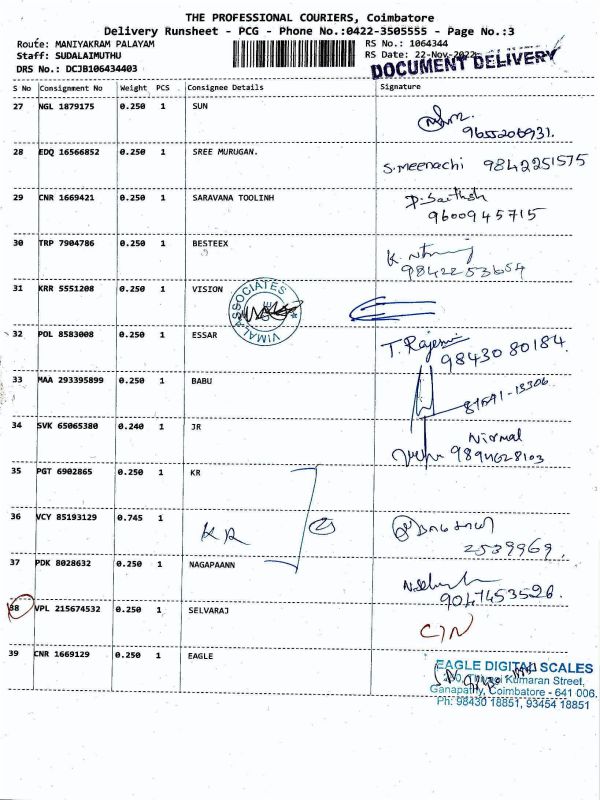 THE PROFESSIONAL COURIERS, Coimbatore
Delivery Runsheet - PCG - Phone No.:0422-3505555 - Page No.:3
Route: MANIYAKRAM PALAYAM RS No.: 1064344
Staff: SUDALAIMUTHU RS Date: 22-Nov-2022
DRS No.: DCJB106434403 DOCUMENT DELIVERY
S No Consignment No Weight PCS Consignee Details Signature
27 NGL 1879175 0.250 1 SUN
9655206931.
28 EDQ 16566852 0.250 1 SREE MURUGAN.
S.meenachi 9842251575
29 CNR 1669421 0.250 1 SARAVANA TOOLINH
9600945715
30 TRP 7904786 0.250 1 BESTEEX
9842253654
31 KRR 5551208 0.250 1 VISION
VIMAL ASSOCIATES
32 POL 8583008 0.250 1 ESSAR
T. Rajeswari 98430 80184.
33 MAA 293395899 0.250 1 BABU
34 SVK 65065380 0.240 1 JR
Nirmal
9894628103
35 PGT 6902865 0.250 1 KR
36 VCY 85193129 0.745 1
KR
2539969.
37 PDK 8028632 0.250 1 NAGAPAANN
9047453526
38 VPL 215674532 0.250 1 SELVARAJ
C/N
39 CNR 1669129 0.250 1 EAGLE
EAGLE DIGITAL SCALES
Kumaran Street,
Ganapathy, Coimbatore - 641 006.
Ph: 98430 18851, 93454 18851